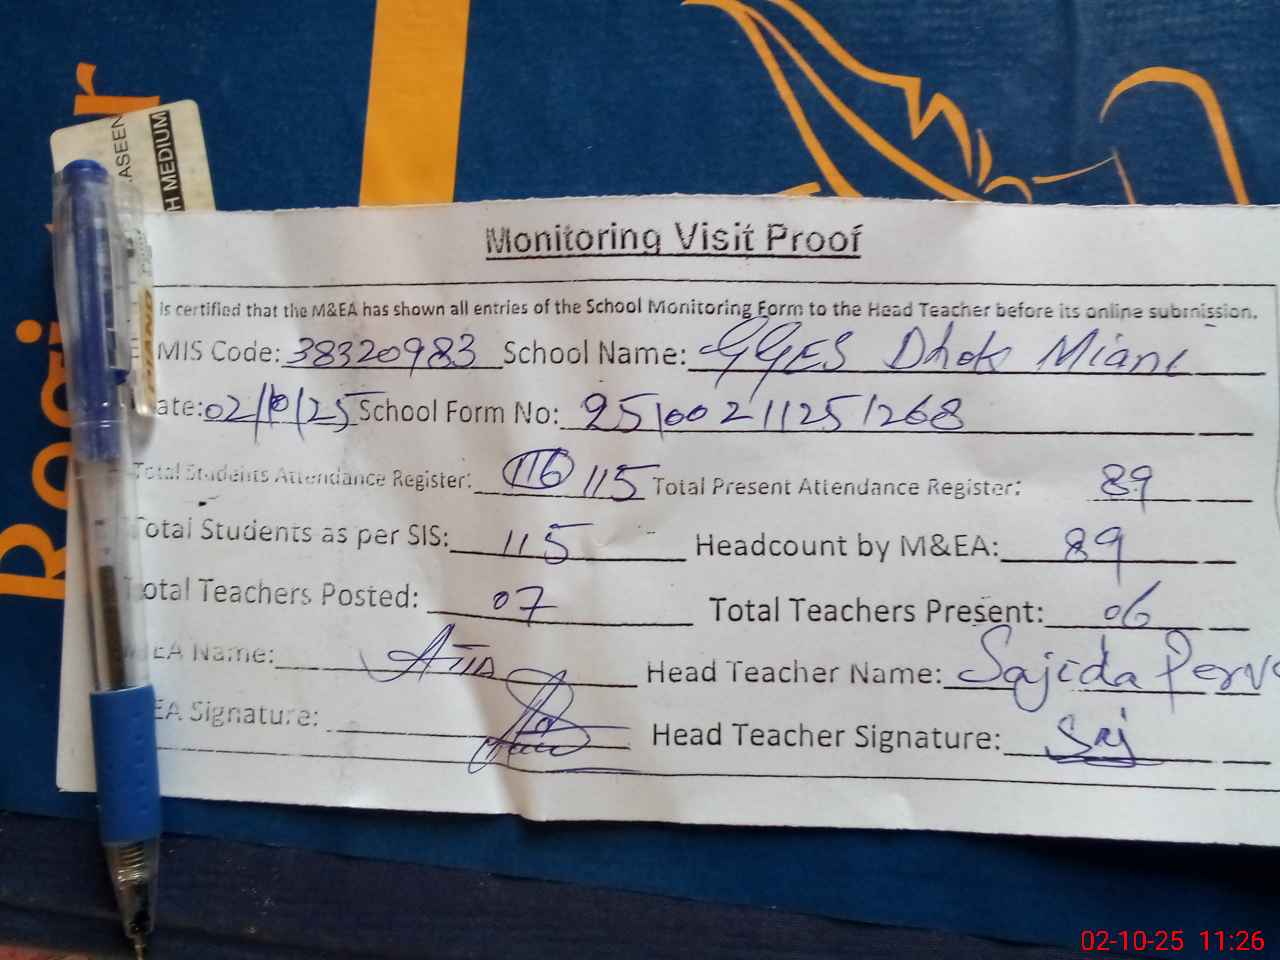 ASEEN
H MEDIUM
Monitoring Visit Proof
is certified that the M&EA has shown all entries of the School Monitoring Form to the Head Teacher before its online submission.
MIS Code: 38320983 School Name: GGES Dhok Miani
ate: 02/10/25 School Form No: 25100211251268
Total Students Attendance Register: 116 115 Total Present Attendance Register: 89
Total Students as per SIS: 115 Headcount by M&EA: 89
Total Teachers Posted: 07 Total Teachers Present: 06
EA Name: Head Teacher Name: Sajida Perv
EA Signature: Head Teacher Signature: Saj
02-10-25 11:26